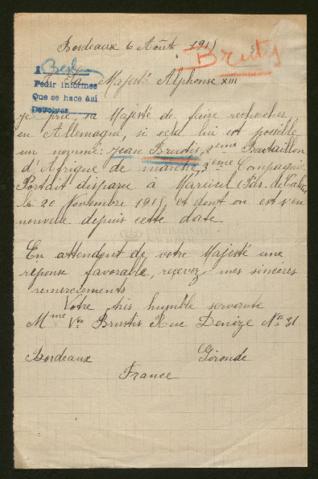 Bordeaux 6 Août 191
Bruty
Berlin
Pedir informes
Que se hace así
Majesté Alphonse XIII
je prie sa Majesté de faire recherches
en Allemagne, si cela lui est possible
un nommé: Jean Brustis 3ème Bataillon
d'Afrique de marche, 3ème Compagnie
Portait disparu à Mareuil Pas. de Calais
le 20 Novembre 1915, et dont on est s'en
nouvelle depuis cette date.
En attendent de votre Majesté une
réponse favorable, recevez mes sincères
remerciements
Votre très humble servante
Mme Vve Brustis Rue No 31
Bordeaux Gironde
France